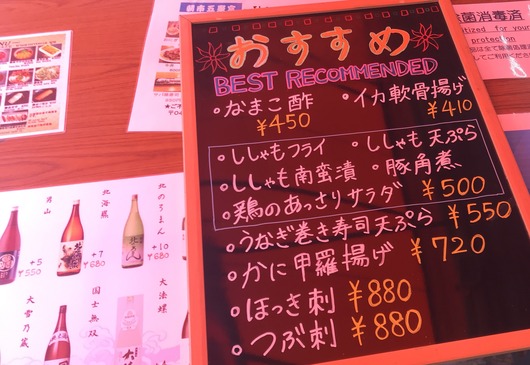 おすすめ
BEST RECOMMENDED
・なまこ酢 ¥450
・イカ軟骨揚げ ¥410
・ししゃもフライ ・ししゃも天ぷら
・ししゃも南蛮漬 ・豚角煮
・鶏のあっさりサラダ ¥500
・うなぎ巻き寿司天ぷら ¥550
・かに甲羅揚げ ¥720
・ほっき刺 ¥880
・つぶ刺 ¥880
男山
+5
¥550
北海熊
+7
¥680
北のろまん
+10
¥680
大雪乃蔵
国士無双
大法螺
消毒済
for your
protection